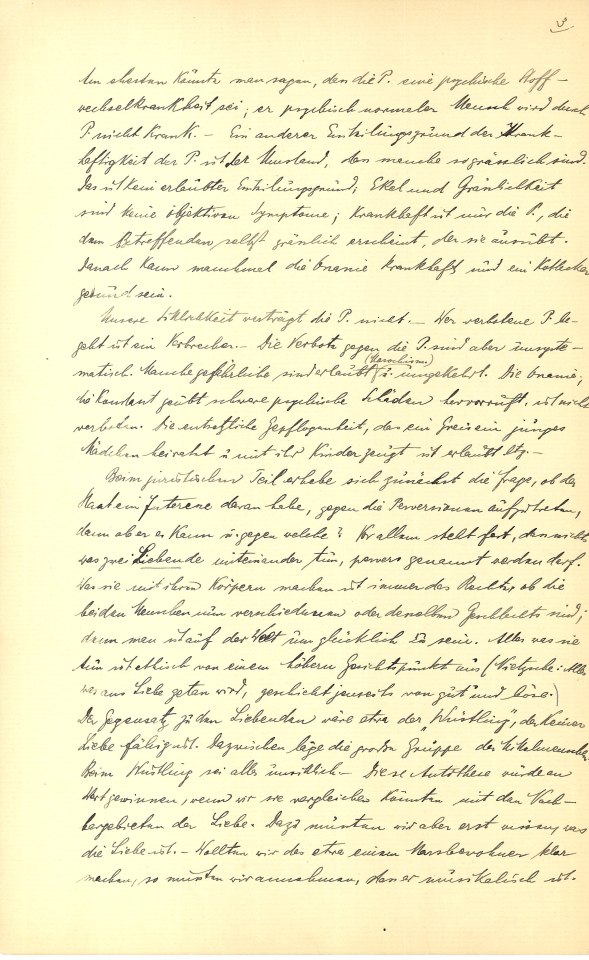 3
Am ehesten könnte man sagen, dass die P. eine psychische Stoff-
wechselkrankheit sei; er psychisch normaler Mensch wird durch
P. nicht krank. – Ein anderer Einteilungsgrund der Krank-
haftigkeit der P. ist der Umstand, dass manche so grässlich sind.
Das ist kein erlaubter Einteilungsgrund; Ekel und Grässlichkeit
sind keine objektiven Symptome; krankhaft ist nur die P., die
dem Betreffenden selbst grässlich erscheint, der sie ausübt.
Danach kann manchmal die Onanie krankhaft und ein Kotlecker
gesund sein.
Unsere Sittlichkeit verträgt die P. nicht. – Wer verbotene P. be-
geht ist ein Verbrecher. – Die Verbote gegen die P. sind aber unsyste-
matisch. Manche gefährliche sind erlaubt (Masochism.) u. umgekehrt. Die Onanie,
die konstant geübt schwere psychische Schäden hervorruft, ist nicht
verboten. Die entsetzliche Gepflogenheit, dass ein Greis ein junges
Mädchen heiratet u mit ihr Kinder zeugt ist erlaubt etz. –
Beim juristischen Teil erhebe sich zunächst die Frage, ob der
Staat ein Interesse daran habe, gegen die Perversionen aufzutreten,
dann ob er es kann u. gegen welche? Vor allem steht fest, dass nichts
was zwei Liebende miteinander tun, pervers genannt werden darf.
Was sie mit ihren Körpern machen ist immer das Rechte, ob die
beiden Menschen nun verschiedenen oder desselben Geschlechts sind;
denn man ist auf der Welt um glücklich zu sein. Alles was sie
tun ist ethisch von einem höhern Gesichtspunkt aus (Nietzsche: Alles
was aus Liebe getan wird, geschieht jenseits von gut und böse.)
Der Gegensatz zu den Liebenden wäre etwa der „Wüstling", der keiner
Liebe fähig ist. Dazwischen läge die große Gruppe der
Beim Wüstling sei alles unsittlich – Diese würden an
Wert gewinnen, wenn wir sie vergleichen könnten mit den Nach-
bargebieten der Liebe. Dazu müssten wir aber erst wissen, was
die Liebe ist. – Wollten wir das etwa einem Marsbewohner klar
machen, so müssten wir annehmen, dass er musikalisch ist.